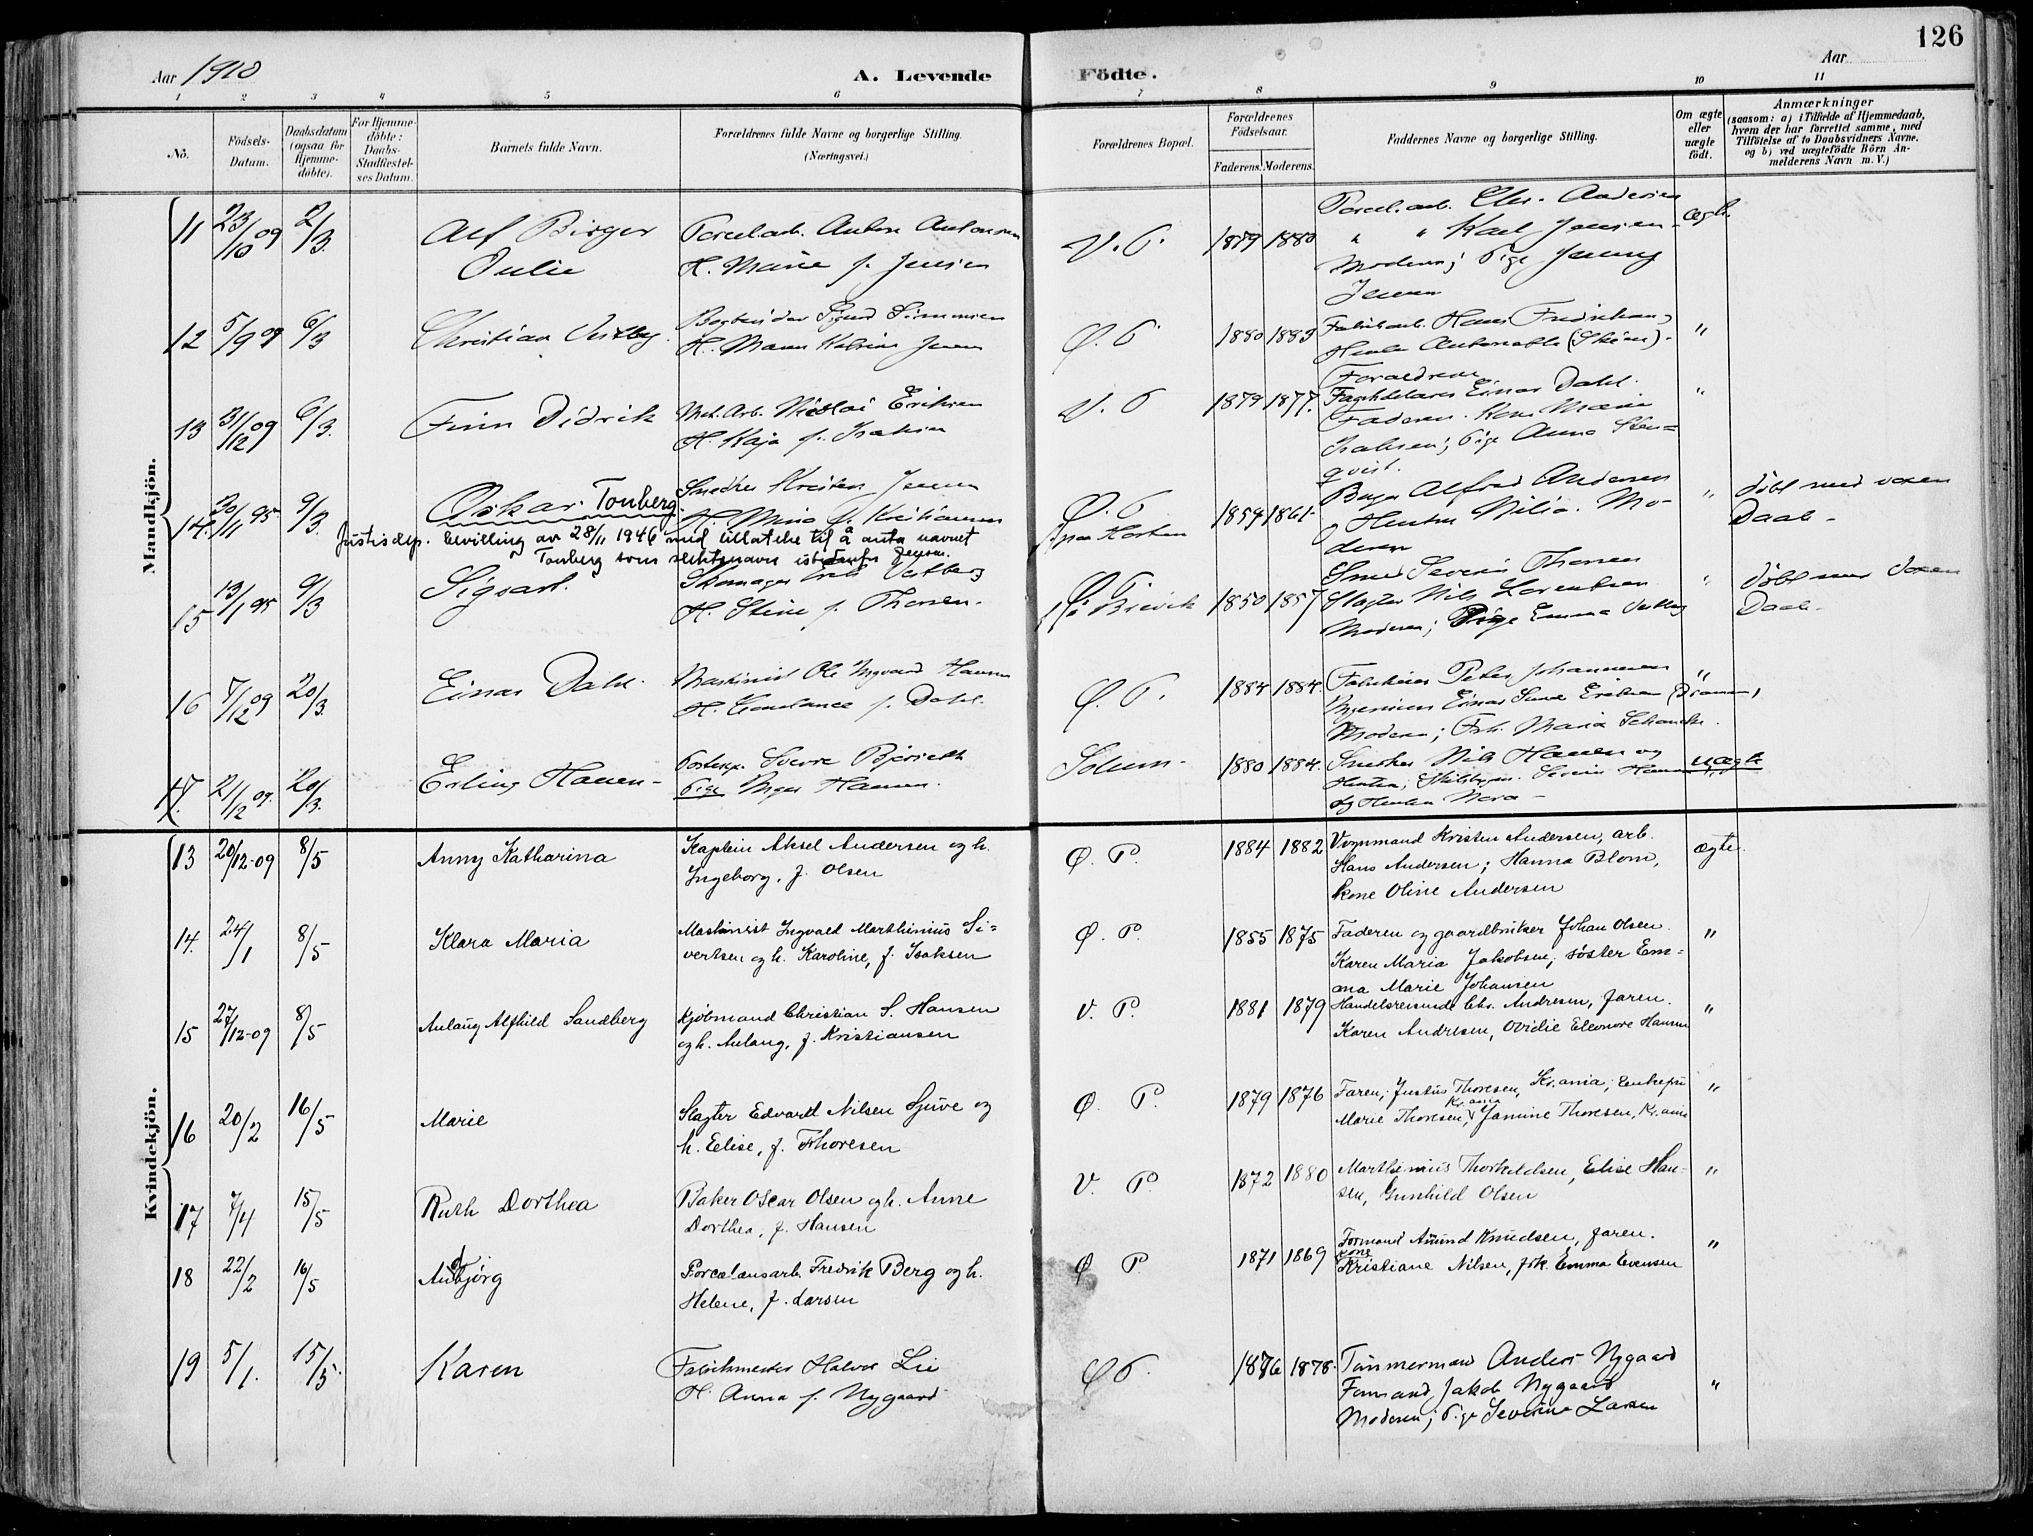 126
Aar 1910
A. Levende Födte.
Aar
1 2 3 4 5 6 7 8 9 10 11
No.
Födsels-
Datum.
Daabsdatum
(ogsaa for
Hjemme-
döbte).
For Hjemme-
döbte:
Daabs-
Stadfæstel-
ses Datum.
Barnets fulde Navn.
Forældrenes fulde Navne og borgerlige Stilling.
(Næringsvei.)
Forældrenes Bopæl.
Forældrenes
Födselsaar.
Faderens. Moderens.
Faddernes Navne og borgerlige Stilling.
Om ægte
eller
uægte
födt.
Anmærkninger
(saasom: a) i Tilfælde af Hjemmedaab,
hvem der har forrettet samme, med
Tilföielse af to Daabsvidners Navne.
og b) ved uægtefödte Börn An-
melderens Navn m. V.)
Mandkjön.
11 23/10 09 2/3. Alf Birger
Julie
Porcel.arb. Anton Antonsen
H. Marie f. Jensen
V. P. 1879 1880
Porcel.arb. Chr. Andersen
" " Karl Jensen
Moderen; Pige Jenny
Jensen
ægte.
12 5/9 09 6/3 Christian Vestby.
Sigurd Simonsen
Ø. P 1880 1883
Fabrikarb. Hans
"
13 31/12 09 6/3. Finn Didrik
Nicolai Eriksen
H. Kaja f. Isaksen
V. P 1879 1877.
Forældrene
Einar Dahl.
Faderen. Kone Marie
Isaksen; Pige Anna Sten=
qvist.
"
14. 20/11 95 9/3. Oskar Tonberg
Justisdep. bevilling av 28/11 1946 med tillatelse til å anta navnet
Tonberg som slektsnavn istedenfor Jensen.
Snedker Kristen Jensen
H. Mina f. Kristiansen
Ø. P 1859 1861.
Alfred Andersen
Moderen
"
döbt med voxen
Daab.
15 13/1 95 9/3 Sigvart.
Skomager Erik Vestberg
H. Stine f. Thorsen.
Ø P
Brevik 1850 1857
Smed Severin Thorsen
Slagter Nils Lorentsen
Moderen; Pige Emma Vestberg
"
döbt med Voxen
Daab.
16 7/12 09 20/3. Einar Dahl.
Maskinist Ole Ingvard Hansen
H. Constance f. Dahl.
Ø. P. 1884 1884.
Peter Johannesen
Einar Eriksen (Drammen)
Moderen; Frk. Maria
"
17. 21/12 09. 20/3. Erling Hansen
Sverre
Pige Inga Hansen.
Solum. 1880 1884.
Snedker Nils Hansen og
uægte
Kvindekjön.
13 20/12-09 8/5 Anny Katharina
Kaptein Aksel Andersen og h.
Ingeborg, f. Olsen
Ø. P. 1884 1882
Vognmand Kristen Andersen, arb.
Hans Andersen; Hanna Blom,
kone Oline Andersen
ægte.
14. 24/1 8/5 Klara Maria
Maskinist Ingvald Marthinius Si=
vertsen og h. Karoline, f. Isaksen
Ø. P. 1855 1875
Faderen og gaardbruker Johan Olsen.
Karen Maria Jakobsen; søster Em=
ma Marie Johansen
"
15 27/12-09 8/5 Aulaug Alfhild Sandberg
Kjøbmand Christian S. Hansen
og h. Aulaug, f. Kristiansen
V. P. 1881 1879
Handelsreisende Chr. Andresen, faren.
Karen Andresen, Ovidie Eleonore Hansen
"
16 20/2 16/5 Marie
Slagter Edvardt Nilsen Sjuve og
h. Elise, f. Thoresen
Ø. P. 1879 1876
Faren; Justus Thoresen, Kr.ania; Enkefru
Marie Thoresen, Kr.ania Jamine Thoresen, Kr.ania
"
17 7/4 15/5 Ruth Dorthea
Baker Oscar Olsen og h. Anne
Dorthea, f. Hansen
V. P. 1872 1880
Marthinius Thorkildsen, Elise Han-
sen, Gunhild Olsen
"
18 22/2 16/5 Audbjørg
Porcelænsarb. Fredrik Berg og h.
Helene, f. Larsen
Ø P 1871 1869
Formand Amund Knudsen, faren.
kone
Kristiane Nilsen, frk. Emma Evensen
"
19 5/1. 15/5. Karen
Fabrikmester Halvor Lie
H. Anna f. Nygaard
Ø P. 1876 1878.
Tømmermand Anders Nygaard
Formand Jakob Nygaard
Moderen; Pige Severine Larsen
"